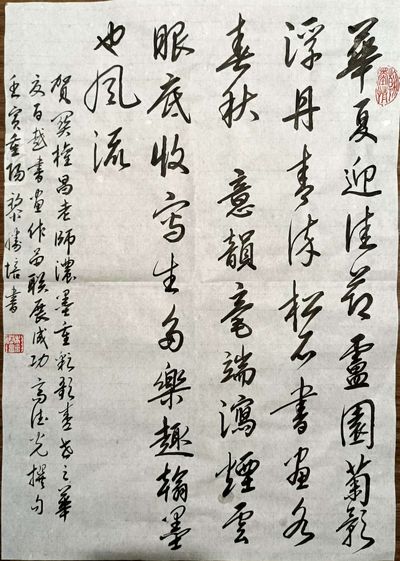 華夏迎佳節靈園菊影
浮丹青松石書畫各
春秋 意韻毫端瀉煙雲
眼底收寫生多樂趣翰墨
也風流
賀關權昌老師濃墨重彩之華
百越書畫作品聯展成功高德光撰句
壬寅重陽黎勝培書